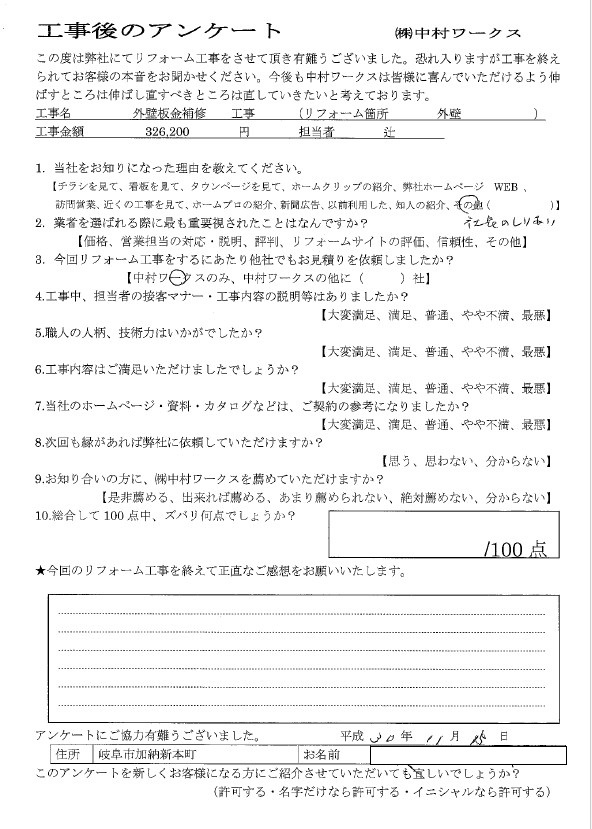 工事後のアンケート ㈱中村ワークス
この度は弊社にてリフォーム工事をさせて頂き有難うございました。恐れ入りますが工事を終え
られてお客様の本音をお聞かせください。今後も中村ワークスは皆様に喜んでいただけるよう伸
ばすところは伸ばし直すべきところは直していきたいと考えております。
工事名 外壁板金補修 工事 （リフォーム箇所 外壁 ）
工事金額 326,200 円 担当者 辻
1. 当社をお知りになった理由を教えてください。
【チラシを見て、看板を見て、タウンページを見て、ホームクリップの紹介、弊社ホームページ WEB 、
訪問営業、近くの工事を見て、ホームプロの紹介、新聞広告、以前利用した、知人の紹介、その他（ ）】
社長のしりあい
2. 業者を選ばれる際に最も重要視されたことはなんですか？
【価格、営業担当の対応・説明、評判、リフォームサイトの評価、信頼性、その他】
3. 今回リフォーム工事をするにあたり他社でもお見積りを依頼しましたか？
【中村ワークスのみ、中村ワークスの他に（ ）社】
4.工事中、担当者の接客マナー・工事内容の説明等はありましたか？
【大変満足、満足、普通、やや不満、最悪】
5.職人の人柄、技術力はいかがでしたか？
【大変満足、満足、普通、やや不満、最悪】
6.工事内容はご満足いただけましたでしょうか？
【大変満足、満足、普通、やや不満、最悪】
7.当社のホームページ・資料・カタログなどは、ご契約の参考になりましたか？
【大変満足、満足、普通、やや不満、最悪】
8.次回も縁があれば弊社に依頼していただけますか？
【思う、思わない、分からない】
9.お知り合いの方に、㈱中村ワークスを薦めていただけますか？
【是非薦める、出来れば薦める、あまり薦められない、絶対薦めない、分からない】
10.総合して100点中、ズバリ何点でしょうか？
/100 点
★今回のリフォーム工事を終えて正直なご感想をお願いいたします。
アンケートにご協力有難うございました。 平成 30 年 11 月 日
住所 岐阜市加納新本町 お名前
このアンケートを新しくお客様になる方にご紹介させていただいても宜しいでしょうか？
（許可する・名字だけなら許可する・イニシャルなら許可する）